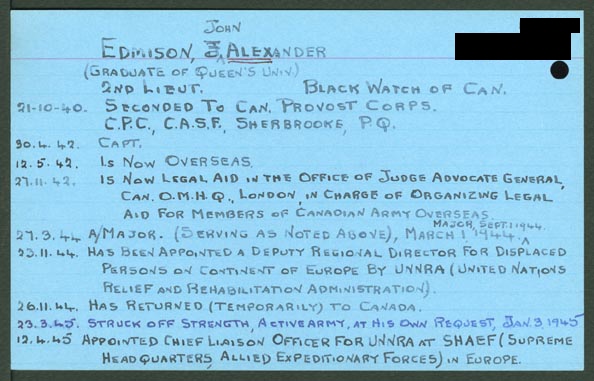 JOHN
EDMISON, J. ALEXANDER
(GRADUATE OF QUEEN'S UNIV)
2ND LIEUT. BLACK WATCH OF CAN.
21-10-40. SECONDED TO CAN. PROVOST CORPS.
C.P.C., C.A.S.F., SHERBROOKE, P.Q.
30.4.42. CAPT.
12.5.42. IS NOW OVERSEAS.
27.11.42. IS NOW LEGAL AID IN THE OFFICE OF JUDGE ADVOCATE GENERAL,
CAN. O.M.H.Q., LONDON, IN CHARGE OF ORGANIZING LEGAL
AID FOR MEMBERS OF CANADIAN ARMY OVERSEAS.
MAJOR, SEPT. 1 1944.
27.3.44 A/MAJOR. (SERVING AS NOTED ABOVE), MARCH 1, 1944. ^
23.11.44. HAS BEEN APPOINTED A DEPUTY REGIONAL DIRECTOR FOR DISPLACED
PERSONS ON CONTINENT OF EUROPE BY UNNRA (UNITED NATIONS
RELIEF AND REHABILITATION ADMINISTRATION).
26.11.44. HAS RETURNED (TEMPORARILY) TO CANADA.
23.3.45. STRUCK OFF STRENGTH, ACTIVE ARMY, AT HIS OWN REQUEST, JAN. 3, 1945
12.4.45 APPOINTED CHIEF LIAISON OFFICER FOR UNNRA AT SHAEF (SUPREME
HEADQUARTERS, ALLIED EXPEDITIONARY FORCES) IN EUROPE.